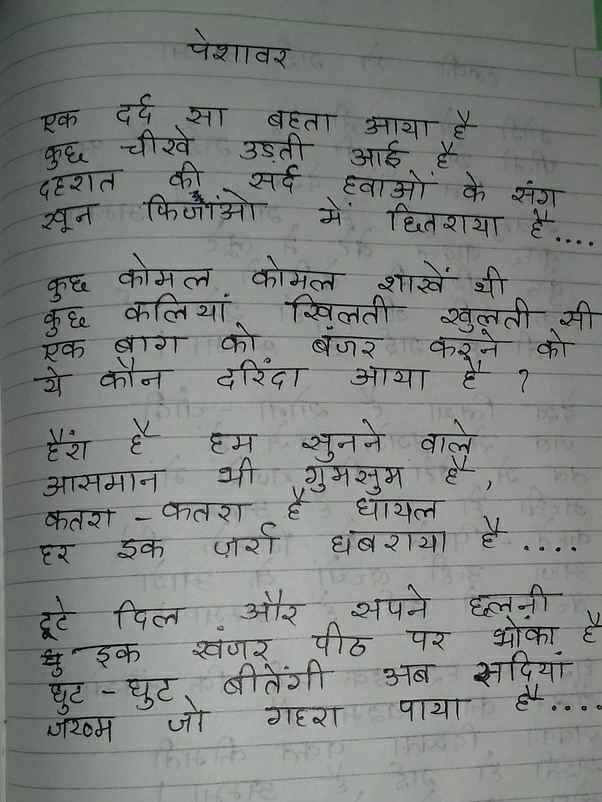 पेशावर
एक दर्द सा बहता आया है
कुछ चीखे उड़ती आई है
दहशत की सर्द हवाओं के संग
खून फिजांओ में छितराया है....
कुछ कोमल कोमल शाखें थी
कुछ कलियां खिलती खुलती सी
एक बाग को बंजर करने को
ये कौन दरिंदा आया है ?
हैरां है हम सुनने वाले
आसमान भी गुमसुम है,
कतरा - कतरा है घायल
हर इक ज़र्रा घबराया है....
टूटे दिल और सपने छलनी
इक खंजर पीठ पर भोंका है
घुट - घुट बीतेंगी अब सदियां
जख्म जो गहरा पाया है....